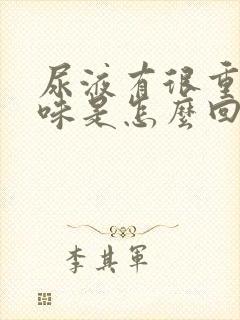 尿液有很重
味是怎麼回
李其軍